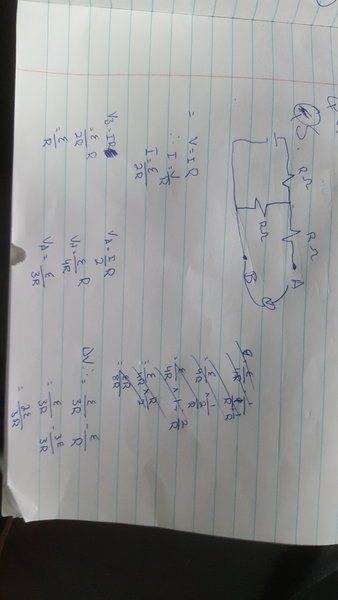 Q5.
RΩ
RΩ
A
RΩ
B
V
= V = IR
∴ I = V/R
I = ε/2R
V_B = IR
= ε/2R R
= ε/R
V_A = I/2 R
V_A = ε/4R R
V_A = ε/3R
= ε/4R × 1
= ε/4R × R/2
= εR/8R
ΔV ∴ = ε/3R - ε/R
= ε/3R - 3ε/3R
= 2ε/3R